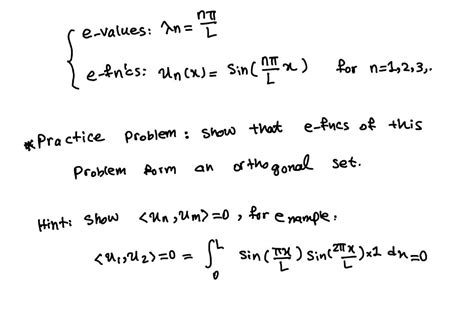 e-values: λn = nπ/L
e-fn's: un(x) = Sin(nπ/L x) for n=1,2,3,.
*Practice Problem: Show that e-fncs of this
Problem form an orthogonal set.
Hint: Show <un,um>=0, for example,
<u1,u2>=0 = ∫₀ᴸ Sin(πx/L) Sin(2πx/L)×1 dx=0